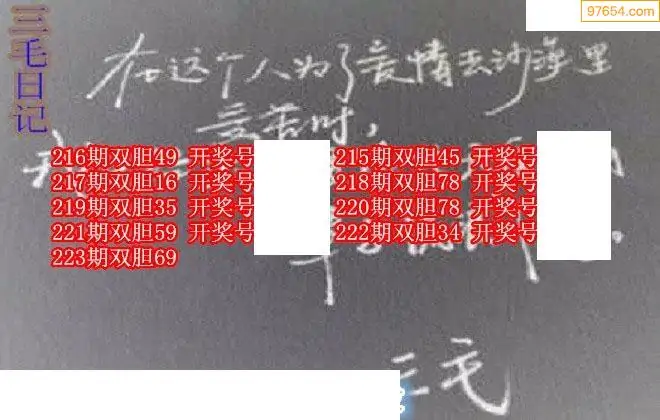 三毛日记
97654.com
在这个人为了爱情去沙漠里
受苦时,
216期双胆49 开奖号
215期双胆45 开奖号
217期双胆16 开奖号
218期双胆78 开奖号
219期双胆35 开奖号
220期双胆78 开奖号
221期双胆59 开奖号
222期双胆34 开奖号
223期双胆69
三毛